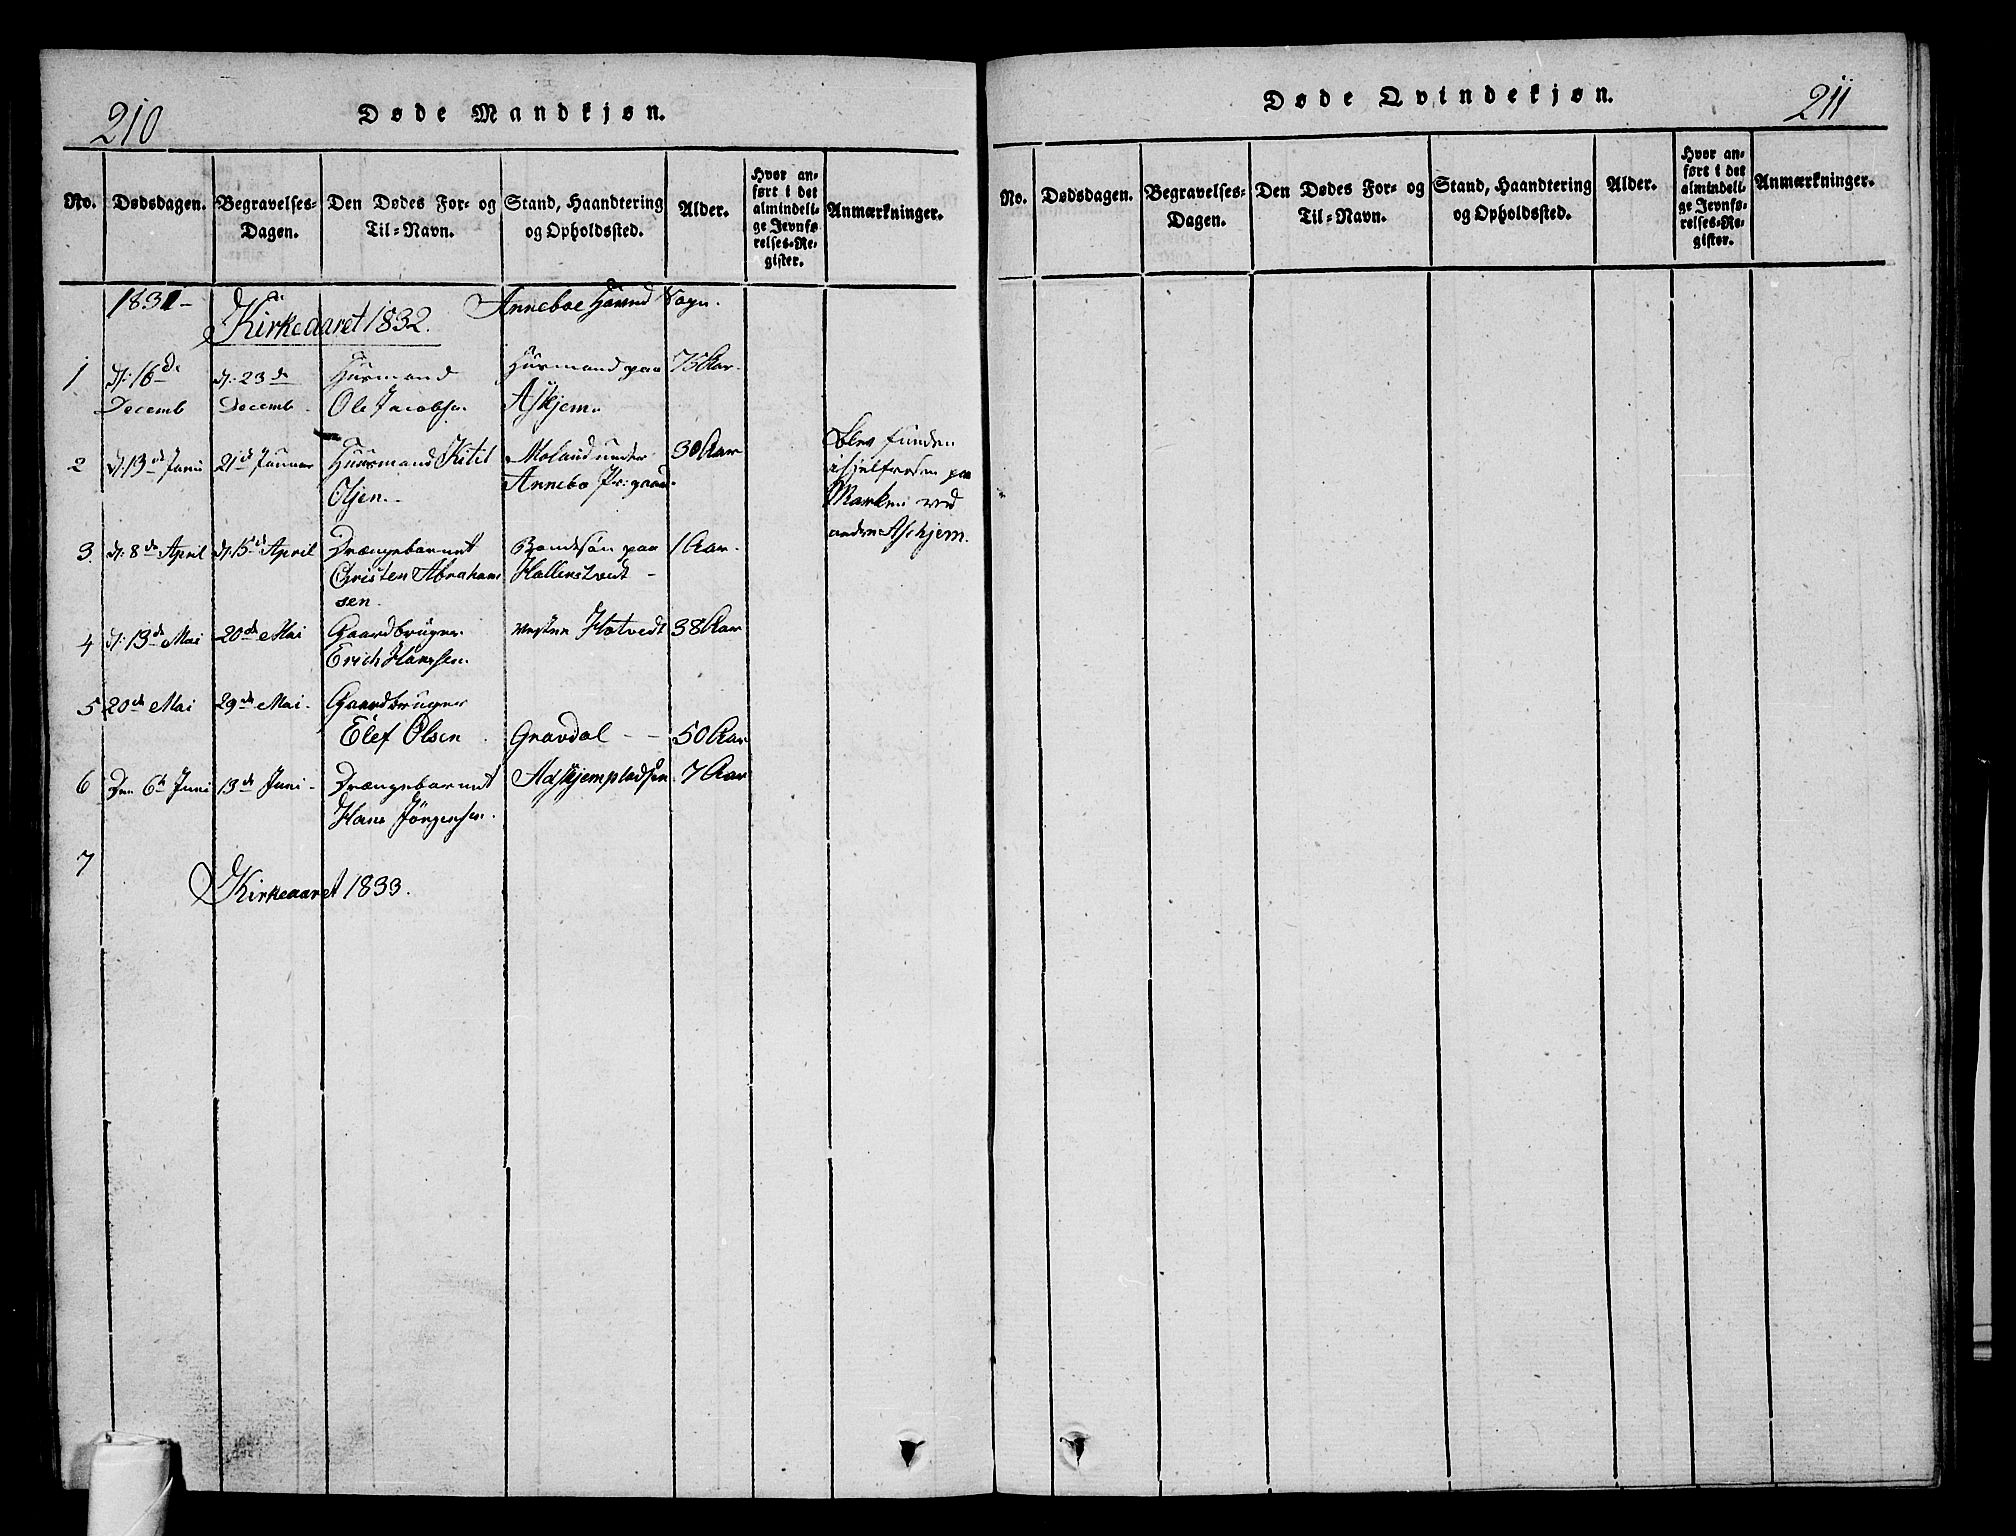 210
Døde Mandkjøn.
No. Dødsdagen. Begravelses-Dagen. Den Dødes For- og Til-Navn. Stand, Haandtering og Opholdssted. Alder. Hvor anført i det almindelige Jevnførelses-Register. Anmærkninger.
1831- Anneboe Hovud Sogn.
Kirkeaaret 1832.
1 d: 16de d: 23de Huusmand Huusmand paa 75 Aar.
Decemb Decemb. Ole Jacobsen Askjem.
2 d: 13de Janu 21de Januar Huusmand Kitil Moland under 30 Aar blev funden
Olsen.- Annebo Pr:gaard ihjelfrosen paa
Marken ved
Aschjem.
3. d: 8de April d: 15de April Drængebarnet Bondesøn paa 1 Aar.
Christen Abraham Hallenstvedt -
sen.
4 d: 13de Mai 20de Mai Gaardbruger Vestre Hotvedt 38 Aar
Erich Hanssen.
5 20de Mai 29de Mai. Gaardbruger
Elef Olsen Gravdal - - 50 Aar
6 Den 6te Juni 13de Juni - Drængebarnet Adskjempladsen 7 Aar
Hans Jörgensen.
7
Kirkeaaret 1833.
Døde Qvindekjøn.
211
No. Dødsdagen. Begravelses-Dagen. Den Dødes For- og Til-Navn. Stand, Haandtering og Opholdssted. Alder. Hvor anført i det almindelige Jevnførelses-Register. Anmærkninger.